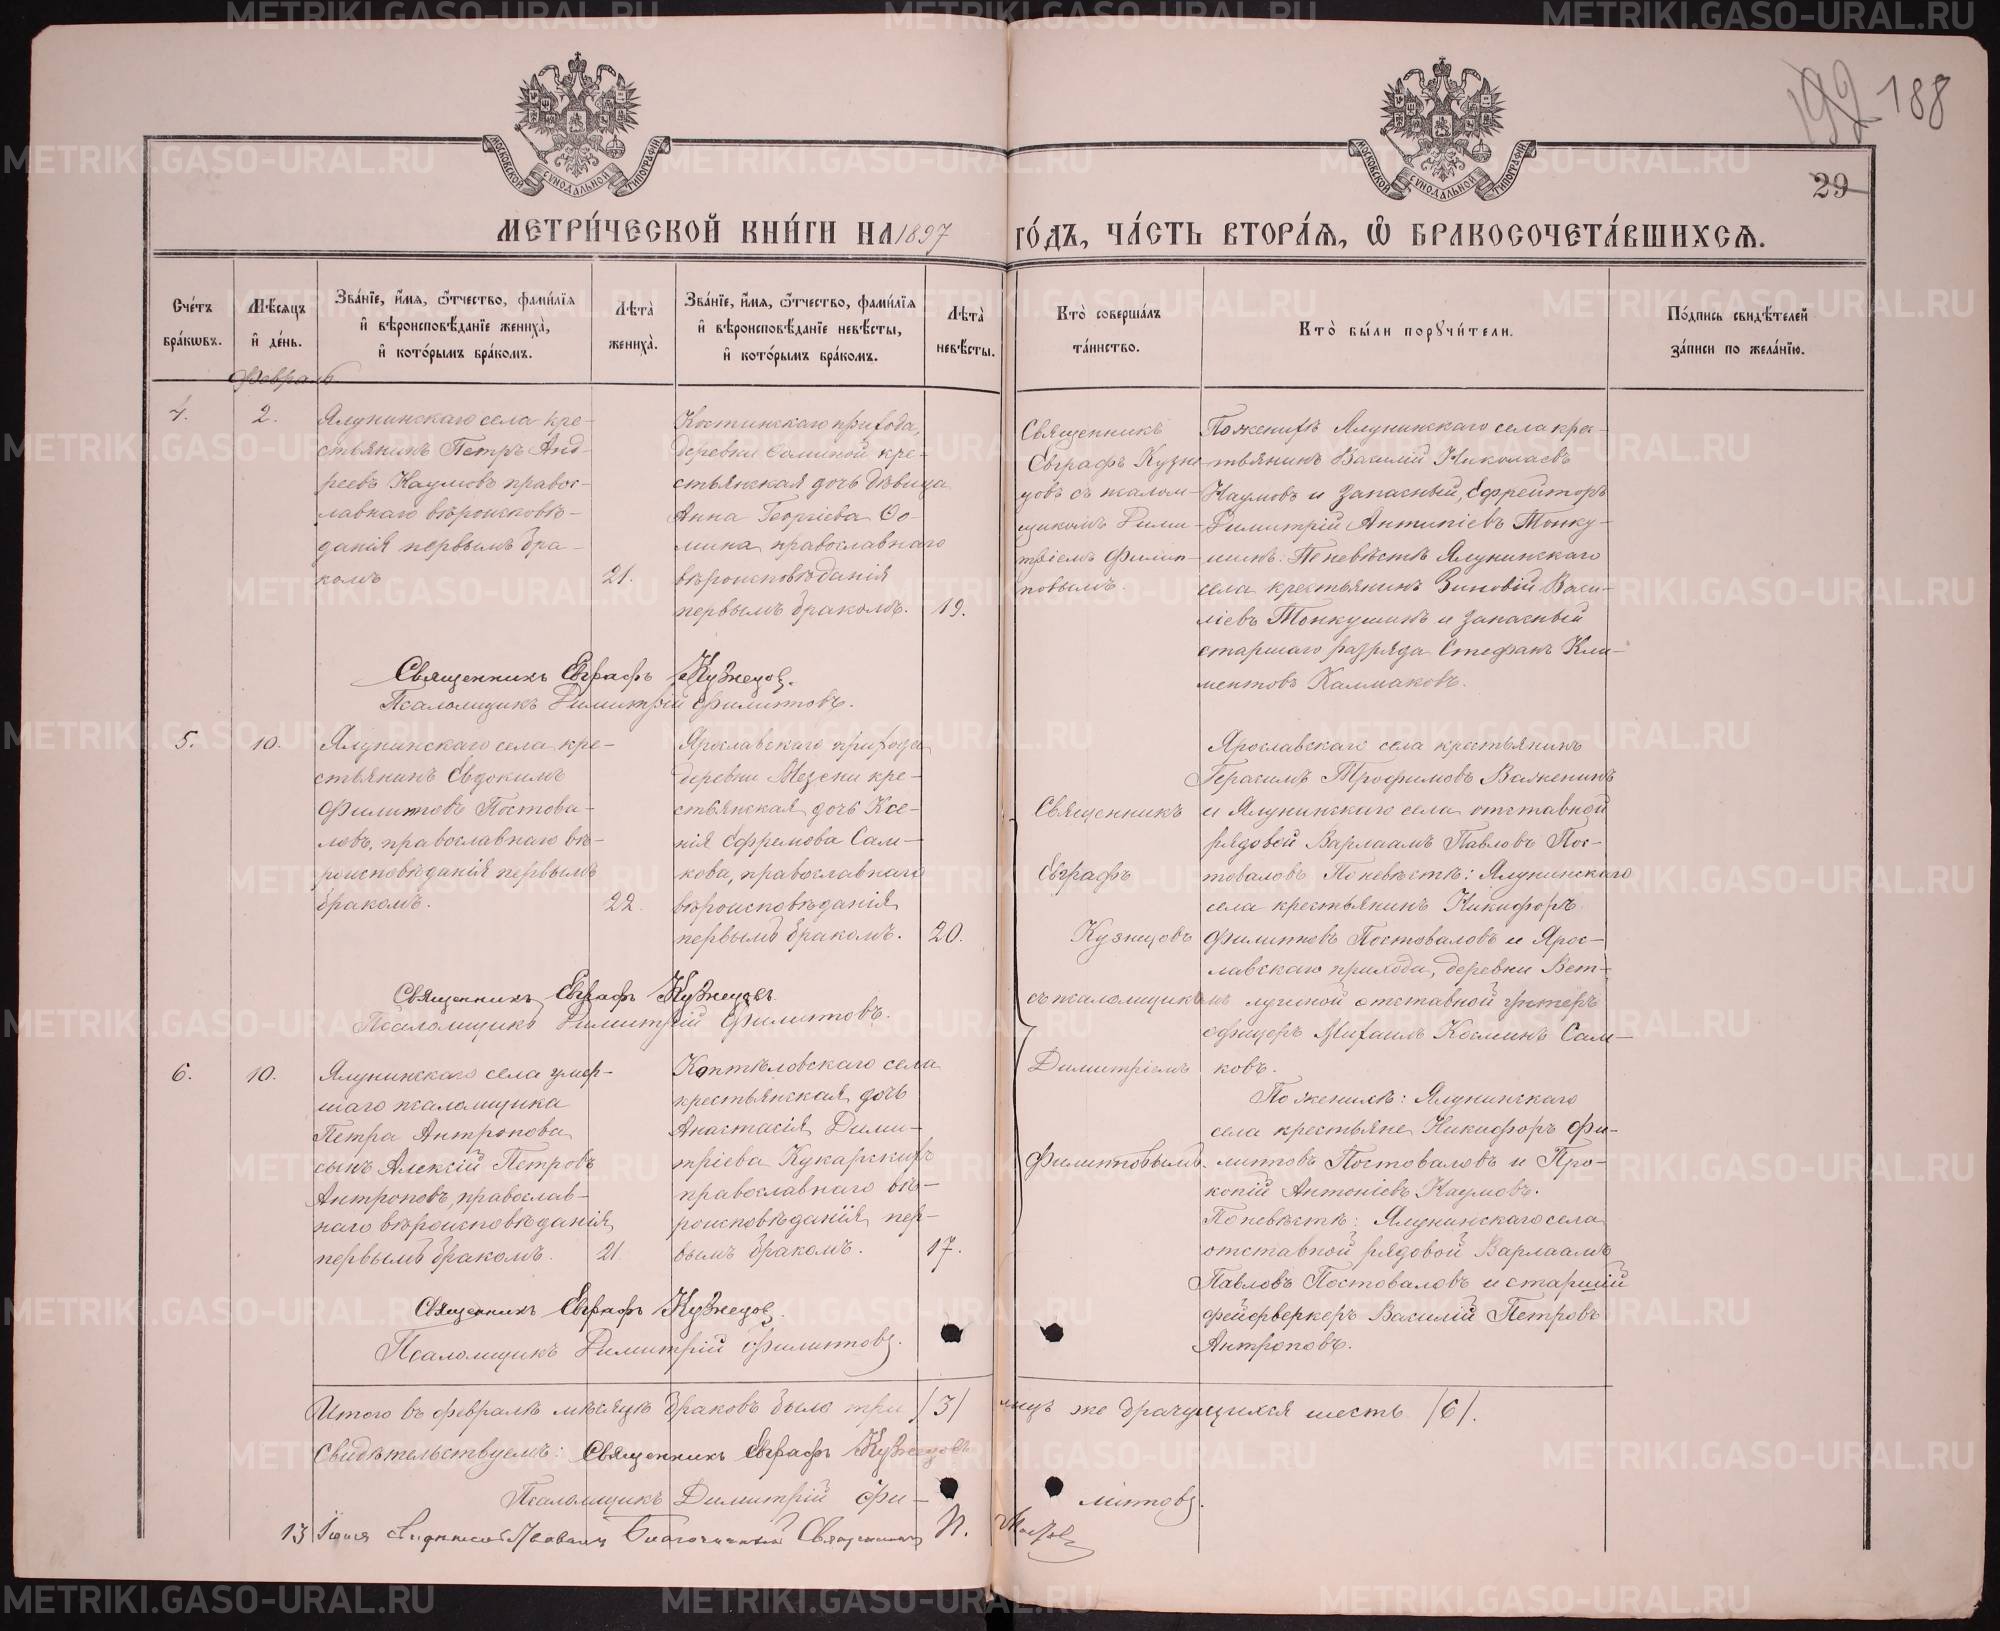 192 188
МОСКОВСКОЙ СѴНОДАЛЬНОЙ ТИПОГРАФІИ
МОСКОВСКОЙ СѴНОДАЛЬНОЙ ТИПОГРАФІИ
29
МЕТРИ́ЧЕСКОЙ КНИ́ГИ НА 1897 ГО́ДЪ, ЧА́СТЬ ВТОРА́Я, Ѡ҆ БРАКОСОЧЕТА́ВШИХСЯ.
Сче́тъ
бра́кѡвъ.
Мѣ́сяцъ
и҆ де́нь.
Зва́нїе, и҆́мя, ѻ҆́тчество, фамі́лїя
и҆ вѣроисповѣ́данїе жениха̀,
и҆ кото́рымъ бра́комъ.
Лѣта̀
жениха̀.
Зва́нїе, и҆́мя, ѻ҆́тчество, фамі́лїя
и҆ вѣроисповѣ́данїе невѣ́сты,
и҆ кото́рымъ бра́комъ.
Лѣта̀
невѣ́сты.
Кто̀ соверша́лъ
та́инство.
Кто̀ бы́ли порꙋчи́тели.
По́дпись свидѣ́телей
за́писи по жела́нїю.
Февраль
4.
2.
Ялунинскаго села кре-
стьянинъ Петръ Анд-
реевъ Наумовъ правос-
лавнаго вѣроисповѣ-
данія первымъ бра-
комъ
21.
Костинскаго прихода,
деревни Ѳоминой кре-
стьянская дочь дѣвица
Анна Георгіева Ѳо-
мина православнаго
вѣроисповѣданія
первымъ бракомъ.
19.
Священникъ
Евграфъ Кузне
цовъ съ псалом-
щикомъ Дими-
тріемъ Филип-
повымъ.
По женихѣ Ялунинскаго села крес-
тьянинъ Василій Николаевъ
Наумовъ и запасный, Ефрейторъ
Димитрій Антипіевъ Тонку-
шинъ: По невѣстѣ Ялунинскаго
села крестьянинъ Зиновій Васи-
ліевъ Тонкушинъ и запасный
старшаго разряда Стефанъ Кли-
ментовъ Калмаковъ.
Священникъ Евграфъ Кузнецов.
Псаломщикъ Димитрій Филиповъ.
5.
10.
Ялунинскаго села кре-
стьянинъ Евдокимъ
Филиповъ Постова-
ловъ, православнаго вѣ-
роисповѣданія первымъ
бракомъ.
22.
Ярославскаго прихода
деревни Мезени кре-
стьянская дочь Ксе-
нія Ефремова Сам-
кова, православнаго
вѣроисповѣданія
первымъ бракомъ.
20.
Священникъ
Евграфъ
Кузнецовъ
съ псаломщикомъ
Димитріемъ
Филипповымъ.
Ярославскаго села крестьянинъ
Герасимъ Трофимовъ Важенинъ
и Ялунинскаго села отставной
рядовой Варлаамъ Павловъ Пос-
товаловъ По невѣстѣ: Ялунинскаго
села крестьянинъ Никифоръ
Филиповъ Постоваловъ и Ярос-
лавскаго прихода, деревни Вет-
лугиной отставной унтеръ
офицеръ Михаилъ Косминъ Сам-
ковъ.
Священникъ Евграфъ Кузнецовъ.
Псаломщикъ Димитрій Филиповъ.
6.
10.
Ялунинскаго села умер-
шаго псаломщика
Петра Антропова
сынъ Алексій Петровъ
Антроповъ, православ-
наго вѣроисповѣданія
первымъ бракомъ.
21
Коптѣловскаго села
крестьянская дочь
Анастасія Дими-
тріева Кукарскихъ
православнаго вѣ-
роисповѣданія пер-
вымъ бракомъ.
17.
По женихѣ: Ялунинскаго
села крестьяне Никифоръ Фи-
липовъ Постоваловъ и Про-
копій Антоніевъ Наумовъ.
По невѣстѣ: Ялунинскаго села
отставной рядовой Варлаамъ
Павловъ Постоваловъ и старшій
фейерверкеръ Василій Петровъ
Антроповъ.
Священникъ Евграфъ Кузнецов.
Псаломщикъ Димитрій Филиповъ.
Итого въ февралѣ мѣсяцѣ браковъ было три /3/ лицъ же брачущихся шесть /6/.
Свидѣтельствуемъ: Священникъ Евграфъ Кузнецовъ
Псаломщикъ Димитрій Фи-
липовъ.
13 Благочинный Священникъ
METRIKI.GASO-URAL.RU